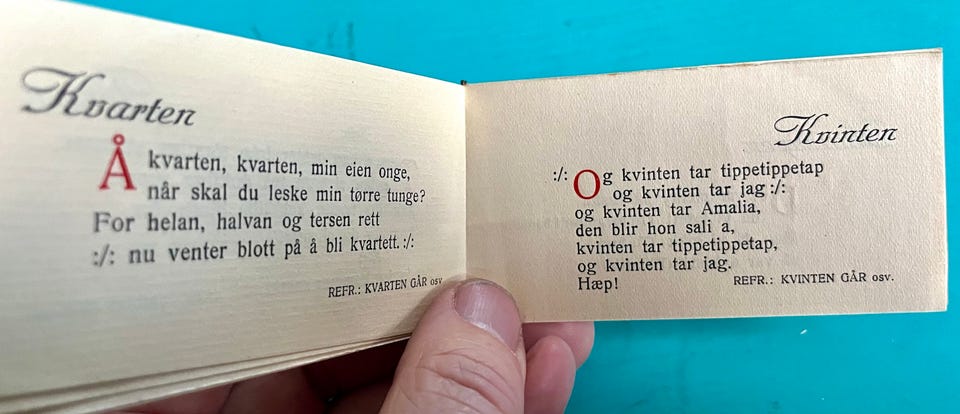 Kvarten
Å kvarten, kvarten, min eien onge,
når skal du leske min tørre tunge?
For helan, halvan og tersen rett
:/: nu venter blott på å bli kvartett. :/:
REFR.: KVARTEN GÅR osv
Kvinten
:/: Og kvinten tar tippetippetap
og kvinten tar jag :/:
og kvinten tar Amalia,
den blir hon sali a,
kvinten tar tippetippetap,
og kvinten tar jag.
Hæp!
REFR.: KVINTEN GÅR osv.